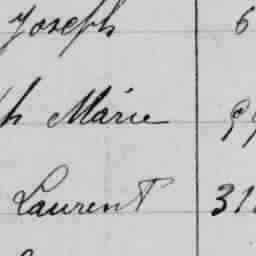 Joseph 6
h Marie 99
Laurent 31